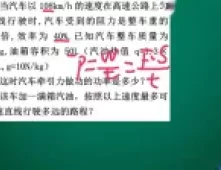 当汽车以108km/h的速度在高速公路上匀
线行驶时,汽车受到的阻力是整车重的
倍,效率为40%.已知汽车整车质量为
g,油箱容积为50L(汽油热值 q
,g=10N/kg)
P=W/t=F·S/t
这时汽车牵引力做功的功率是多少?
该车加一满箱汽油,按照以上速度最多可
速直线行驶多远的路程?